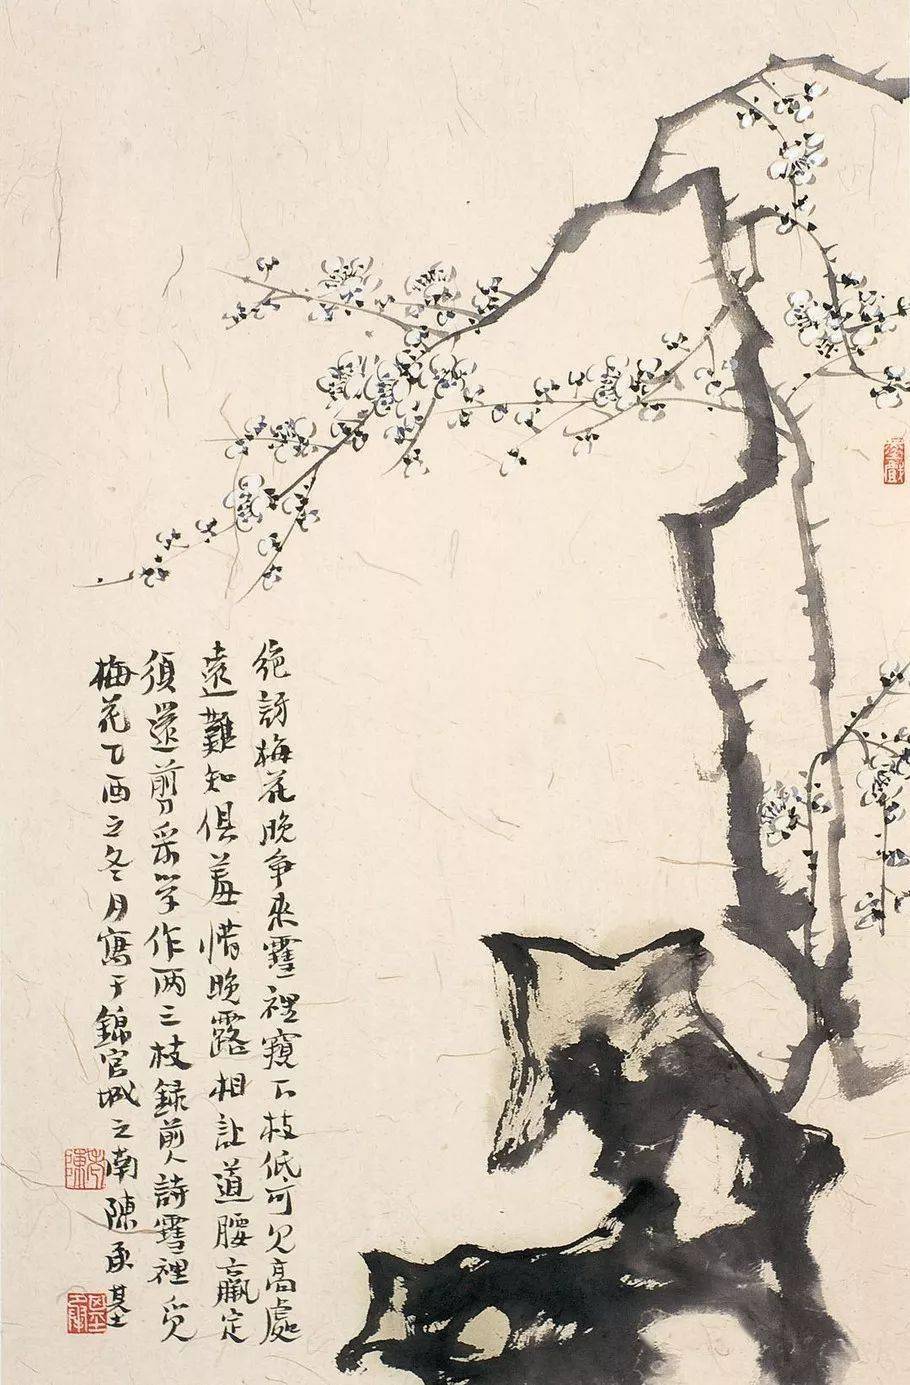 絶訝梅花晚争来雪裡窺下枝低可見高處
遠難知俱羞惜腕露相让道腰羸定
須還剪采学作两三枝録前人詩雪裡覓
梅花乙酉之冬月寫于錦官城之南陳承基